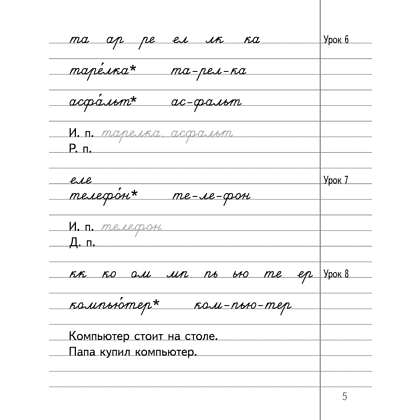 та ар ре ел лк ка Урок 6
таре́лка* та-рел-ка
асфа́льт* ас-фальт
И. п. тарелка, асфальт
Р. п.
еле Урок 7
телефо́н* те-ле-фон
И. п. телефон
Д. п.
кк ко ом мп пь ью те ер Урок 8
компью́тер* ком-пью-тер
Компьютер стоит на столе.
Папа купил компьютер.
5